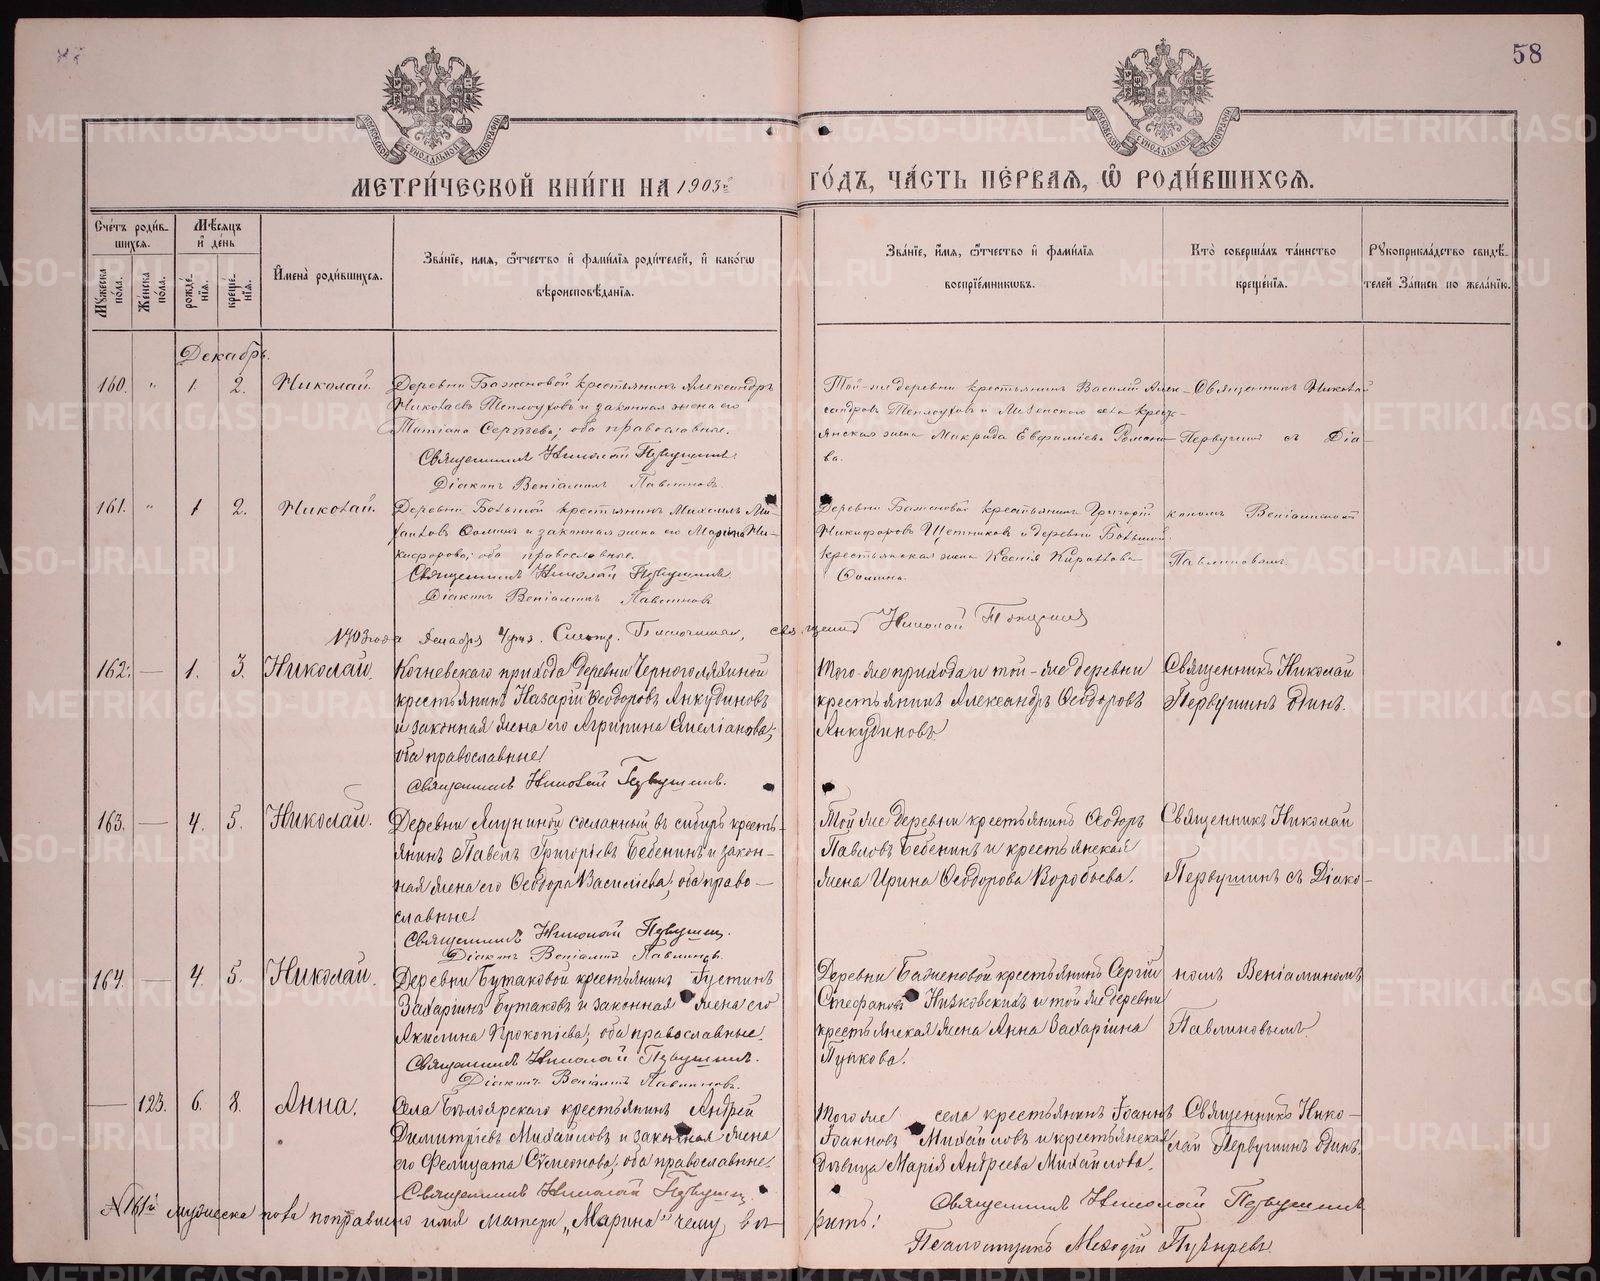 58
МЕТРИ́ЧЕСКОЙ КНИ́ГИ НА 1903й ГО́ДЪ, ЧА́СТЬ ПЕ́РВАЯ, Ѡ РОДИ́ВШИХСЯ.
МОСКОВСКОЙ СѴНОДАЛЬНОЙ ТИПОГРАФІИ
МОСКОВСКОЙ СѴНОДАЛЬНОЙ ТИПОГРАФІИ
Сче́тъ роди́в-
шихся.
Мꙋжеска по́ла.
Же́нска по́ла.
Мѣ́сяцъ и де́нь
рожде́нїя.
креще́нїя.
Имена̀ роди́вшихся.
Зва́нїе, имя, ѻтчество и фами́лїя роди́телей, и како́гѡ
вѣроисповѣ́данїя.
Зва́нїе, имя, ѻтчество и фами́лїя
воспрїе́мникѡвъ.
Кто̀ соверша́лъ та́инство
креще́нїя.
Рꙋкоприкла́дство свидѣ́-
телей За́писи по жела́нїю.
Декабрь.
160. " 1. 2. Николай.
Деревни Баженовой крестьянинъ Александръ
Николаевъ Теплоуховъ и законная жена его
Татіана Сергѣева; оба православные.
Священникъ Николай Первушинъ.
Діаконъ Веніаминъ Павлиновъ
Той-же деревни крестьянинъ Василій Алек-
сандровъ Теплоуховъ и села кресть-
янская жена Макрида Евфиміева Романо-
ва.
Священникъ Николай
Первушинъ съ Діа-
161. " 1 2. Николай.
Деревни Большой крестьянинъ Михаилъ Ми-
хаиловъ Ѳоминъ и законная жена его Марина Ни-
кифорова; оба православные.
Священникъ Николай Первушинъ
Діаконъ Веніаминъ Павлиновъ
Деревни Баженовой крестьянинъ Григорій
Никифоровъ Щетниковъ и деревни Большой
крестьянская жена Ксенія
Ѳомина.
кономъ Веніаминомъ
Павлиновымъ.
1903 года Декабря священникъ Николай
162. — 1. 3. Николай.
Когневскаго прихода деревни Черноголяхиной
крестьянинъ Назарій Ѳеодоровъ Анкудиновъ
и законная жена его Агрипина Емеліанова;
оба православные!
Священникъ Николай Первушинъ.
Того-же прихода и той-же деревни
крестьянинъ Александръ Ѳеодоровъ
Анкудиновъ.
Священникъ Николай
Первушинъ одинъ.
163. — 4. 5. Николай.
Деревни сосланный въ сибирь кресть-
янинъ Павелъ Григоріевъ Бебенинъ и закон-
ная жена его Ѳеодора Василіева; оба право-
славные!
Священникъ Николай Первушинъ.
Діаконъ Веніаминъ Павлиновъ.
Той же деревни крестьянинъ Ѳеодоръ
Павловъ Бебенинъ и крестьянская
жена Ирина Ѳеодорова Воробьева.
Священникъ Николай
Первушинъ съ Діако-
164. — 4. 5. Николай.
Деревни Бутаковой крестьянинъ Іустинъ
Захаріинъ Бутаковъ и законная жена его
Акилина Прокопіева; оба православные.
Священникъ Николай Первушинъ.
Діаконъ Веніаминъ Павлиновъ.
Деревни Баженовой крестьянинъ Сергій
Стефановъ Низковскихъ и той же деревни
крестьянская жена Анна Захаріина
номъ Веніаминомъ
Павлиновымъ
— 123. 6. 8. Анна.
Села Бѣлоярскаго крестьянинъ Андрей
Димитріевъ Михайловъ и законная жена
его Фелицата Сѵмеонова; оба православные!
Священникъ Николай Первушинъ
Того же села крестьянинъ Іоаннъ
Іоанновъ Михайловъ и крестьянская
дѣвица Марія Андреева Михайлова.
Священникъ Нико-
лай Первушинъ одинъ.
№ 161й мужеска пола поправлено имя матери „Марина" чему вѣ-
рить!
Священникъ Николай Первушинъ
Псаломщикъ Меѳодій Пузыревъ.
METRIKI.GASO-URAL.RU